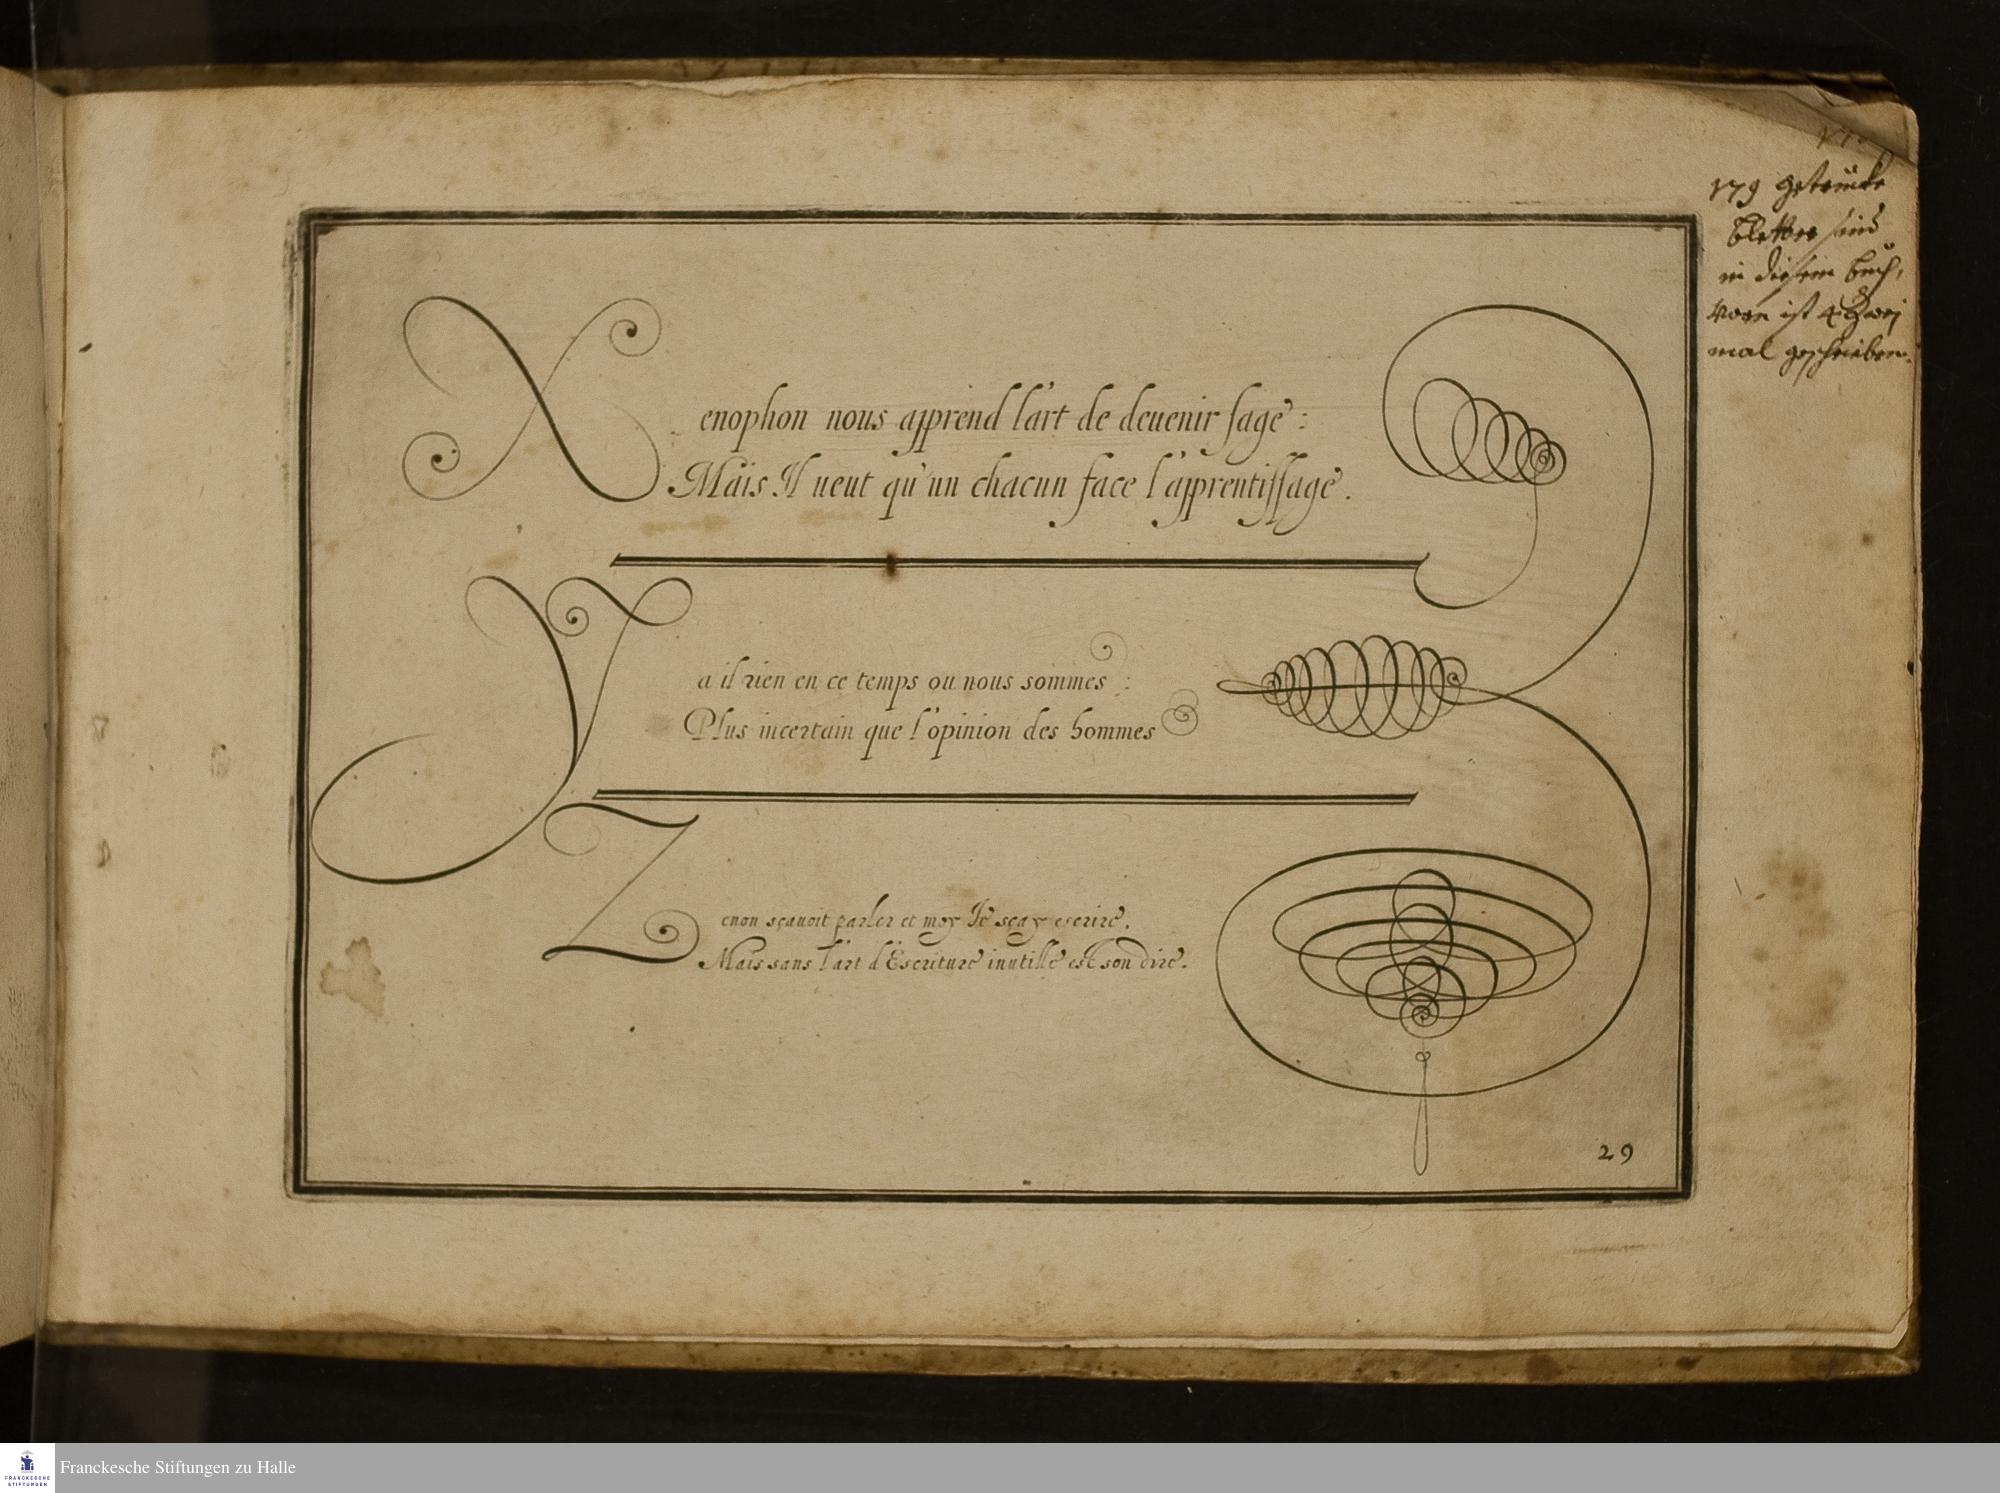 Xenophon nous apprend l'art de deuenir sage :
Mais Il ueut qu'un chacun face l'apprentissage .
Y a il rien en ce temps ou nous sommes :
Plus incertain que l'opinion des hommes
Zenon sçauoit parler et moy Je sçay escrire,
Mais sans l'art d'Escriture inutille est son dire.
29
179 getruckte
bletter sind
in diesem buch,
vorn ist 4 Zwei
mal geschrieben.
Franckesche Stiftungen zu Halle
FRANCKESCHE
STIFTUNGEN